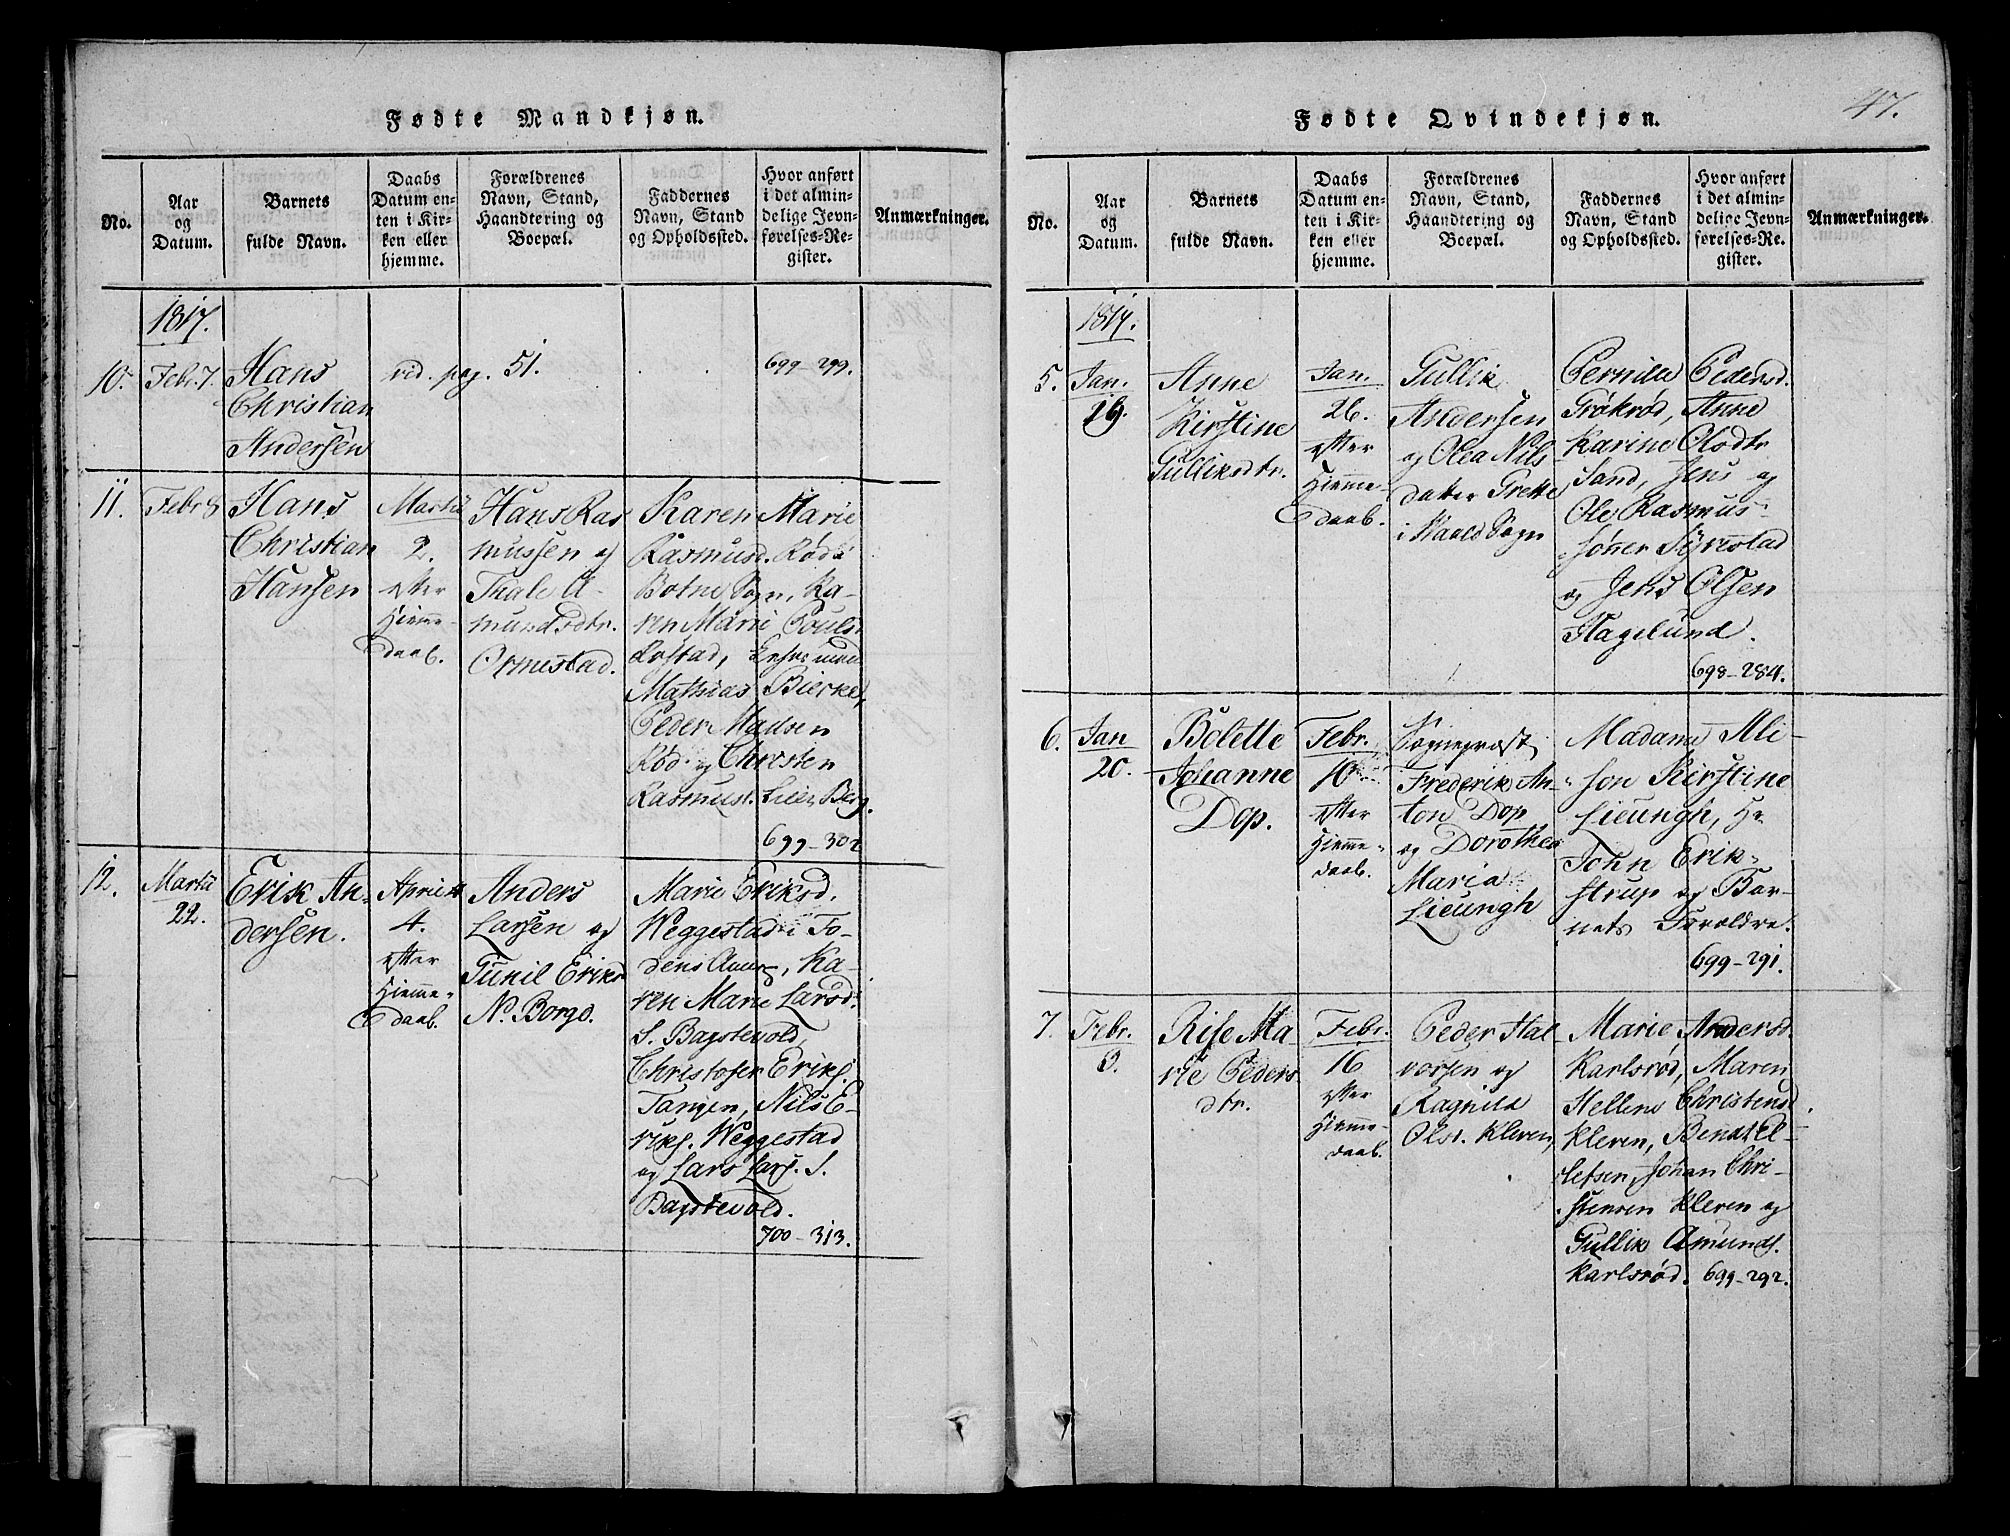 47.
Fødte Mandkjøn.
No.
Aar
og
Datum.
Barnets
fulde Navn.
Daabs
Datum en-
ten i Kir-
ken eller
hjemme.
Forældrenes
Navn, Stand,
Haandtering og
Boepæl.
Faddernes
Navn, Stand
og Opholdssted.
Hvor anført
i det almin-
delige Jevn-
førelses-Re-
gister.
Anmærkninger.
1817.
10.
Febr. 7.
Hans
Christian
Andersen
vid. pag. 51.
699-299.
11.
Febr 8
Hans
Christian
Hansen
Martii
2.
efter
Hiemme-
daab.
Hans Ras
mussen og
Thale A-
mundsdtr.
Ormestad.
Karen Marie
Rasmusd. Röd i
Botne Sogn, Ka-
ren Marie Pouls.
Mathias Bierke,
Peder Madsen
Röd og Christen
Rasmus. Lille Berg.
699-302
12.
Martii
22.
Erik An-
dersen.
Aprilis
4.
efter
Hiemme-
daab.
Anders
Larsen og
Gunil Eriks
N. Borge.
Marie Eriksd.
Weggestad i Fo-
dens Annex, Ka-
ren Marie Larsd.
S. Bagstevold,
Christofer Eriks.
Tangen, Nils E-
riks. Weggestad
og Lars Lars. S.
Bagstevold.
700-313.
Fødte Qvindekjøn.
No.
Aar
og
Datum.
Barnets
fulde Navn.
Daabs
Datum en-
ten i Kir-
ken eller
hjemme.
Forældrenes
Navn, Stand,
Haandtering og
Boepæl.
Faddernes
Navn, Stand
og Opholdssted.
Hvor anført
i det almin-
delige Jevn-
førelses-Re-
gister.
Anmærkninger.
1817.
5.
Jan.
19.
Anne
Kirstine
Gulliksdtr.
Jan.
26.
efter
Hiemme-
daab.
Gullik
Andersen
og Olea Nils
datter Grette
i Sogn
Pernille Pedersd.
Gråkröd, Anne
Karine Olsdtr
Sand, Jens og
Ole Rasmus-
sønner Syrestad
og Jens Olsen
Hagelund.
698-284.
6.
Jan
20.
Bolette
Johanne
Dop.
Febr.
10
efter
Hiemme-
daab.
Sogneprost
Frederik An-
ton Dop
og Dorothea
Maria
Lieungh
Madame Ali-
son Kirstine
Lieungh, Hr
John Erik-
strup og Bar-
nets Foreldre.
699-291.
7.
Febr.
3.
Rise Ma
rie Peders
dtr.
Febr.
16
efter
Hiemme-
daab.
Peder Hal-
vorsen og
Ragnild
Olsd. Kleven,
Marie Andersd.
Karlsröd, Maren
Hellene Christensd.
Kleven, Bendt El-
lefsen, Johan Chri-
stensen Kleven og
Gullik Amunds.
Karlsröd. 699-292.